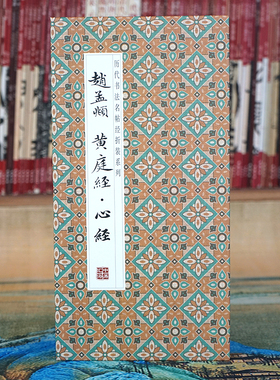 历代书法名帖经折装系列
趙孟頫 黄庭經·心經